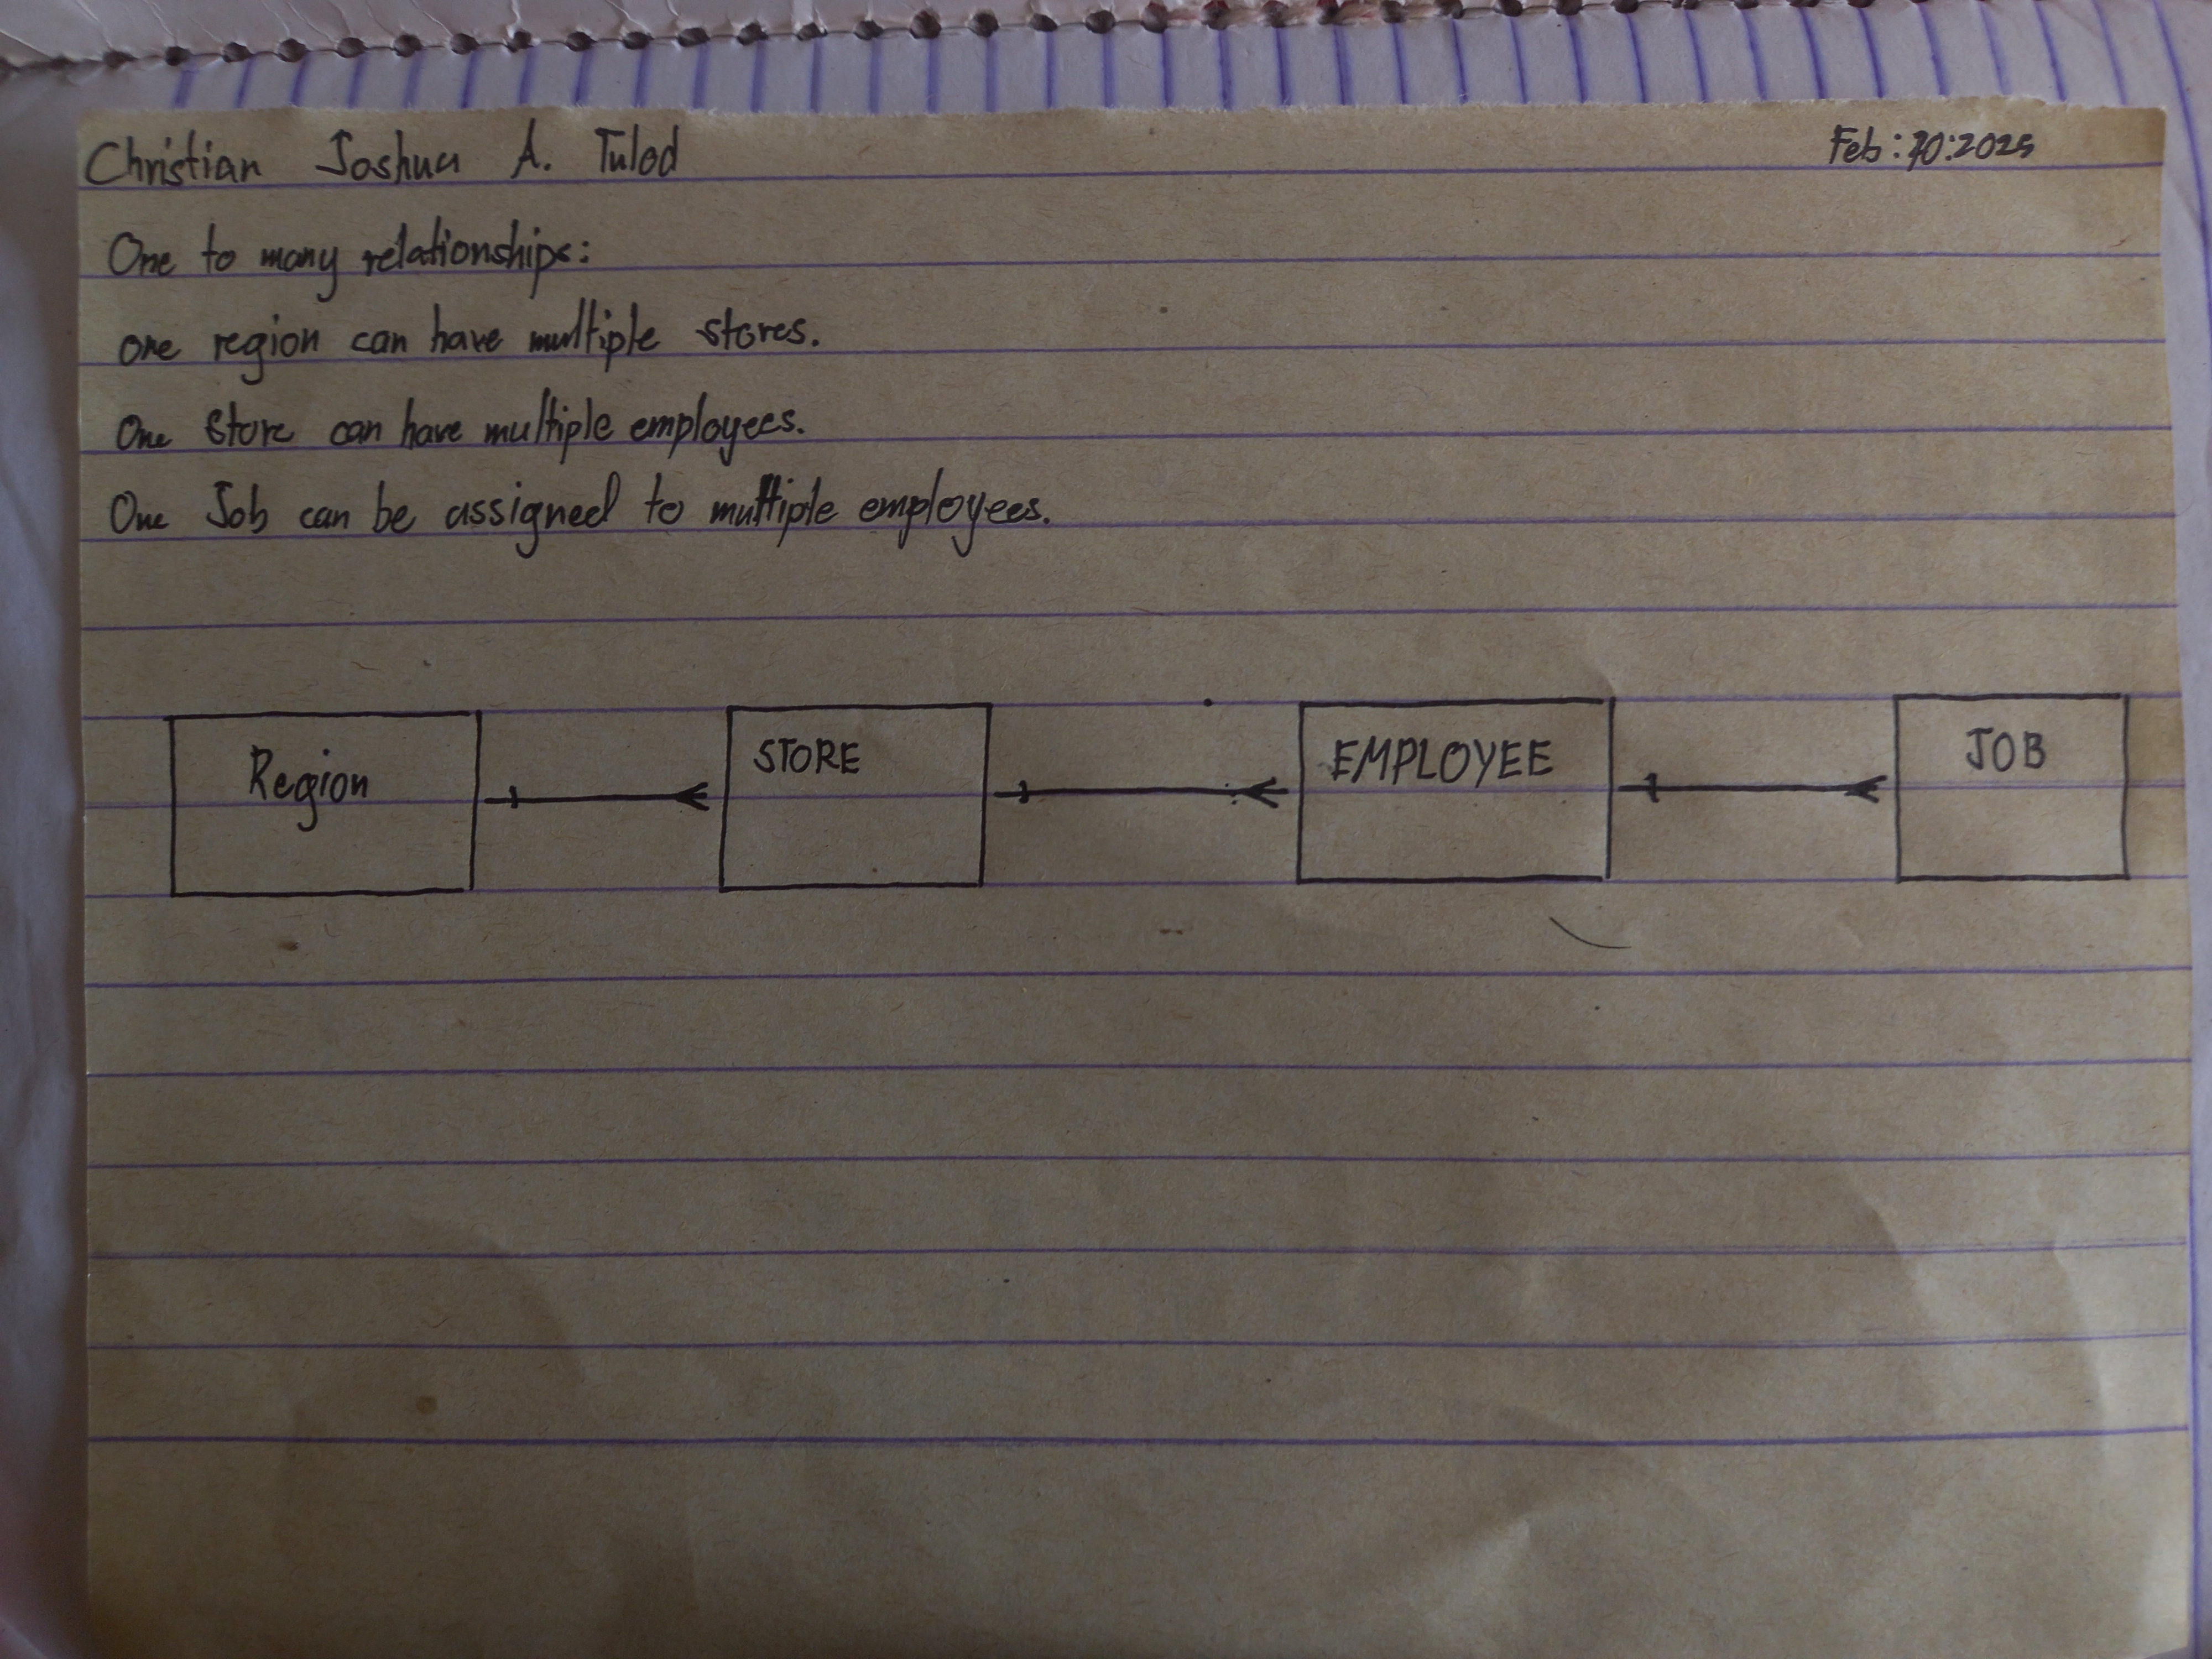 Christian Joshua A. Tulod
Feb: 20:2025
One to many relationships:
one region can have multiple stores.
One store can have multiple employees.
One Job can be assigned to multiple employees.
Region
STORE
EMPLOYEE
JOB